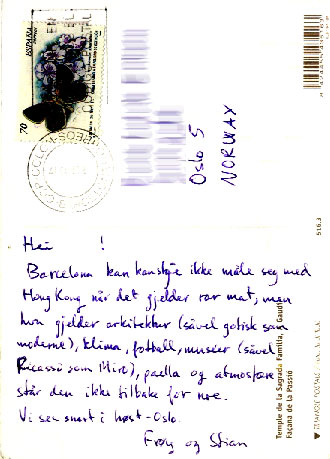 ESPAÑA
70
Oslo 5
NORWAY
Hei !
Barcelona kan kanskje ikke måle seg med
Hong Kong når det gjelder rar mat, men
hva gjelder arkitektur (såvel gotisk som
moderne), klima, fotball, muséer (såvel
Picasso som Miró), paella og atmosfære
står den ikke tilbake for noe.
Vi ses snart i høst-Oslo.
Frøy og Stian
516.3
Temple de la Sagrada Família, A. Gaudí
Façana de la Passió